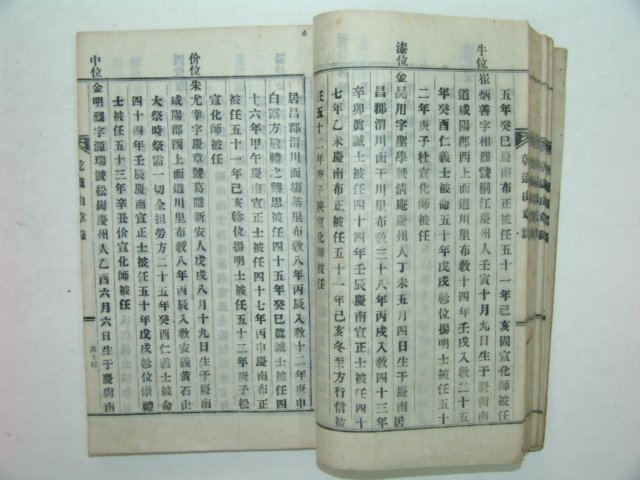 五年癸巳慶南宣正士被任五十一年己亥固宣化師被任
牛位崔炳善字相 號桐江慶州人壬寅十月九日生于慶尙南
道咸陽郡西上面道川里布敎十四年壬戌入敎二十五
年癸酉仁義士被命五十年戊戌軫位揚明士被任五十
二年庚子杜宣化師被任
漆位金 用字聖學號淸庵慶州人丁未五月四日生于慶南居
昌郡渭川面 川里布敎三十八年丙戌入敎四十三年
辛卯眞誠士被任四十五年癸巳慶南布正士被任四十
七年乙未慶南宣正士被任五十一年己亥冬至方行信被
任五十二年庚子陜宣化師被任
居昌郡渭川面場基里布敎八年丙辰入敎十二年庚申
白露方敬禮之 思被任四十五年癸巳眞誠士被任四
十六年甲午慶南宣正士被任四十七年丙申慶南布正
被任五十一年己亥軫位揚明士被任五十二年庚子松
宣化師被任
价位朱尤幸字慶章號葛隱新安人戊戌八月十九日生于慶南
咸陽郡西上面道川里布敎八年丙辰入敎安義黃石山
大祭時祭需一切全担勞方二十五年癸酉仁義士被命
四十四年壬辰慶南宣正士被任五十年戊戌軫位崇禮
士被任五十三年辛丑价宣化師被任
中位金明烈字源瑞號松崗慶州人乙酉六月六日生于慶尙南